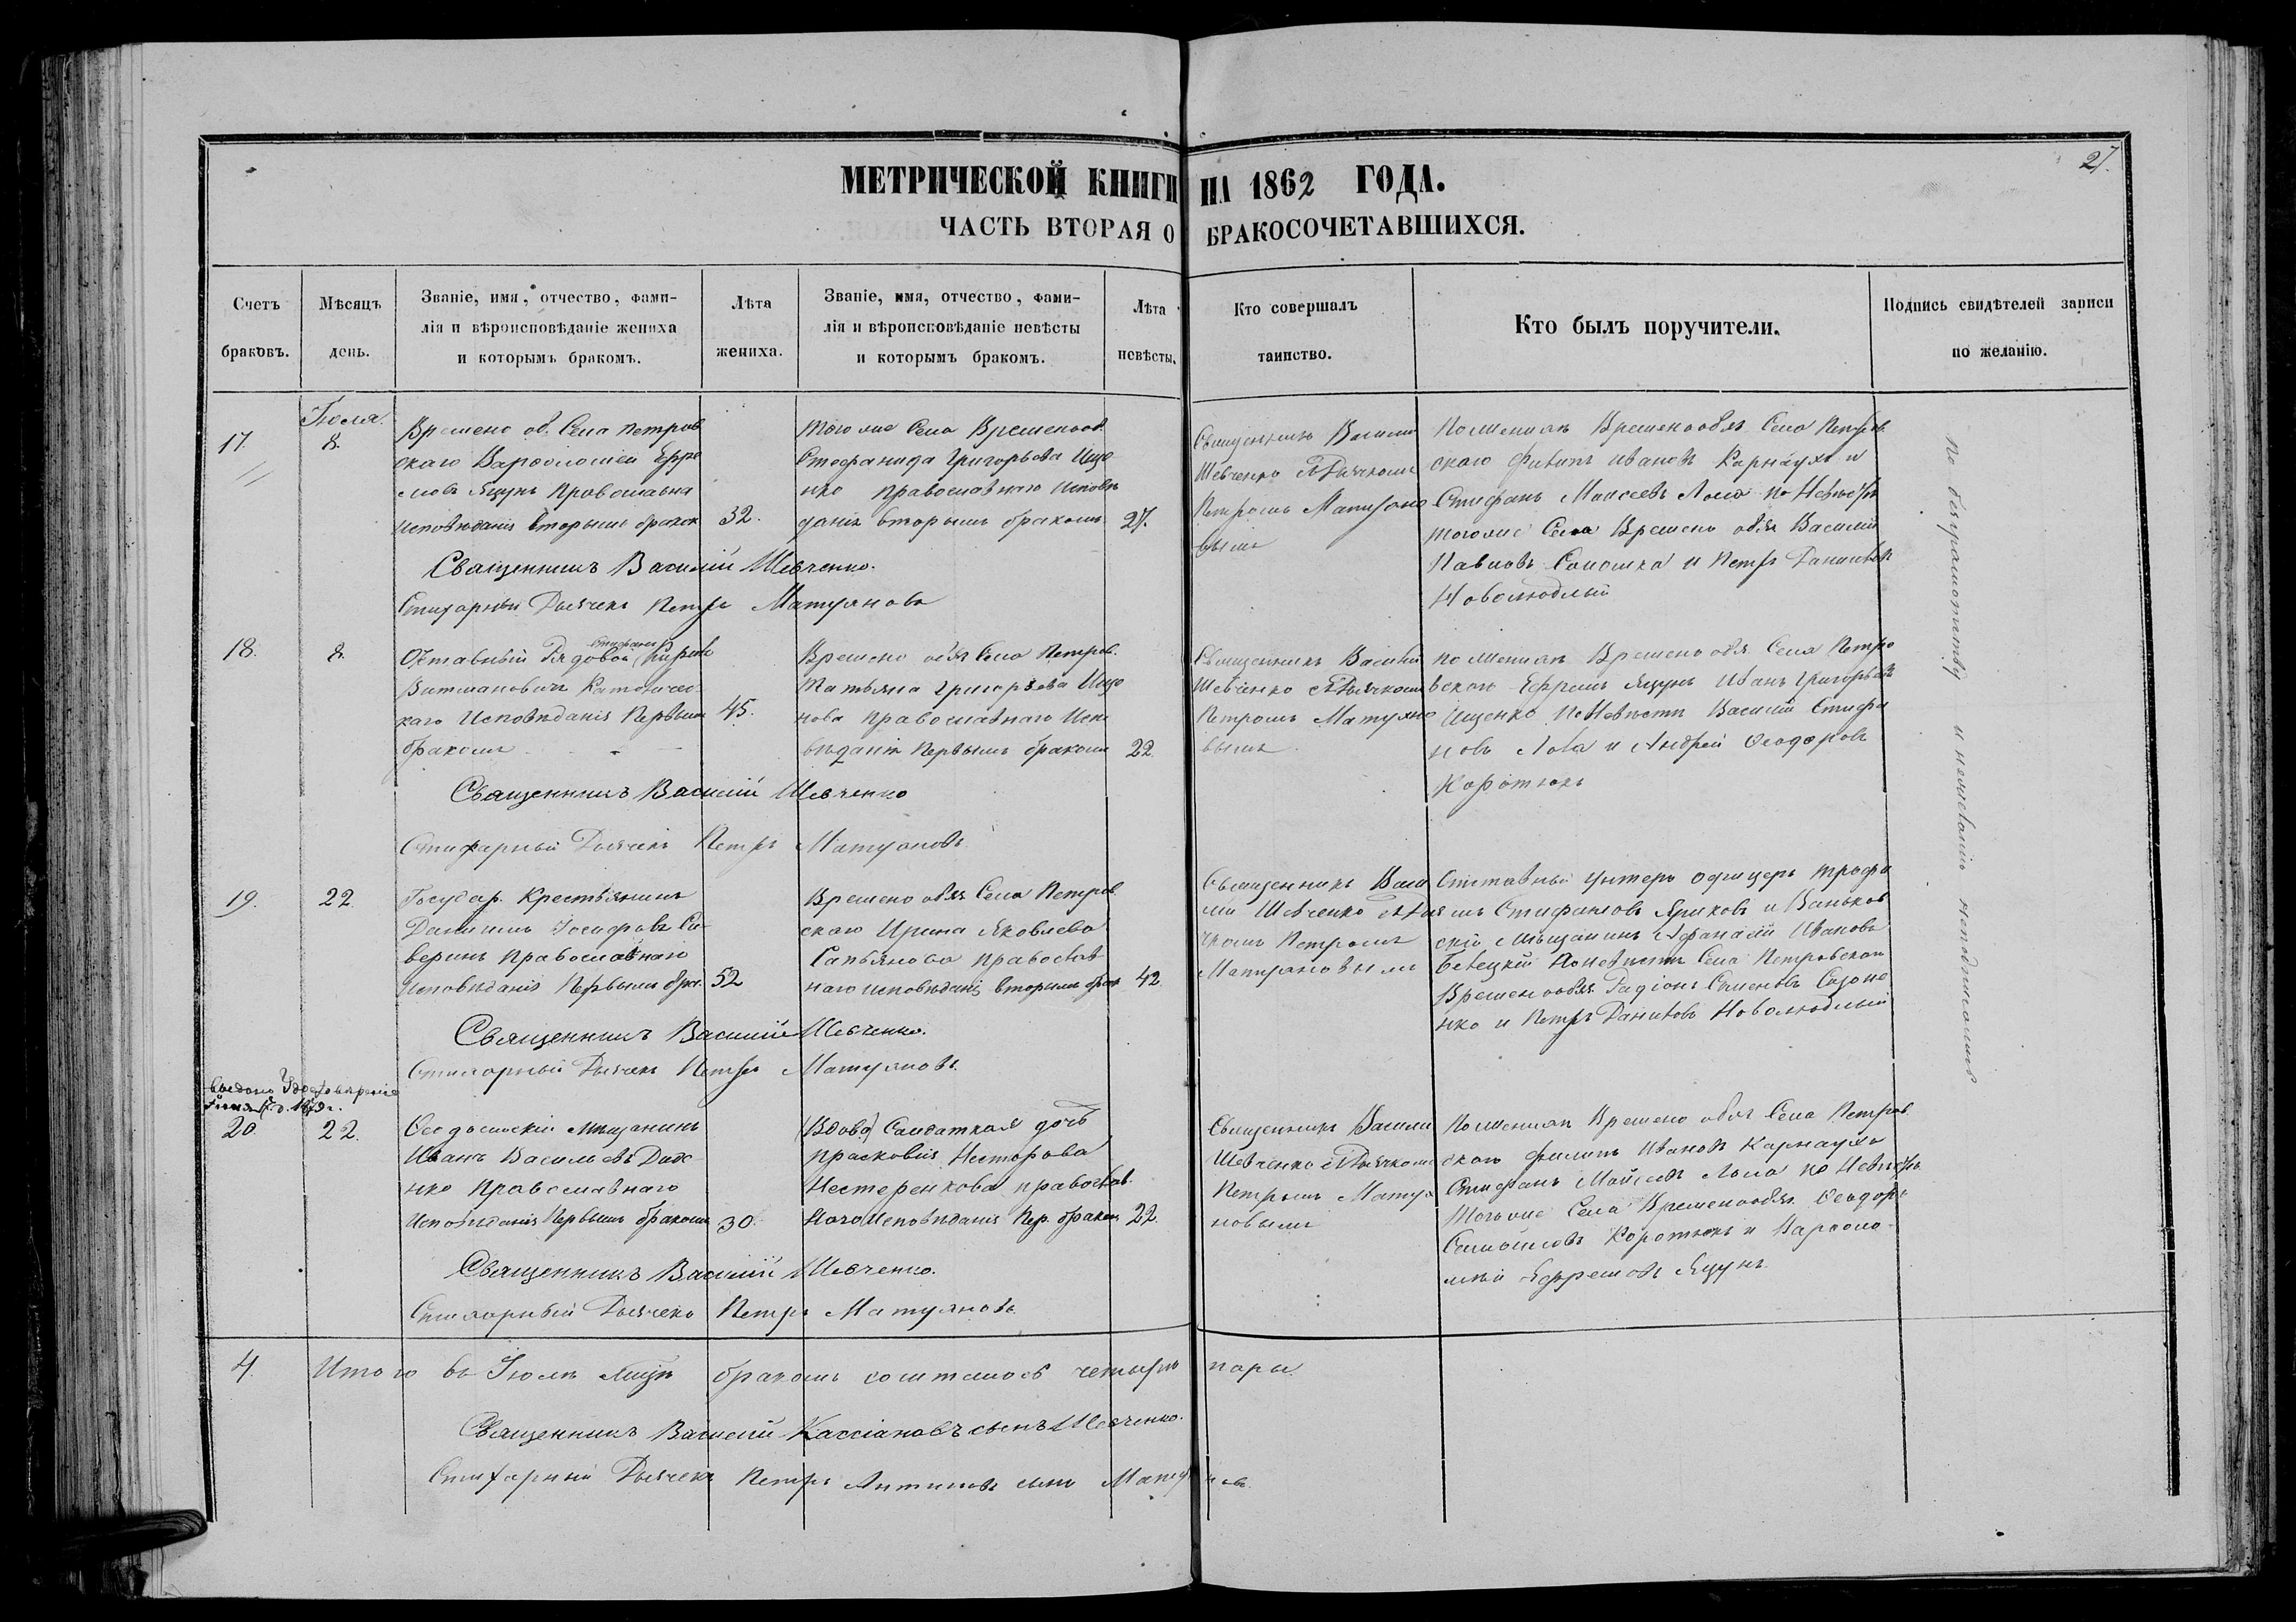 27.
МЕТРИЧЕСКОЙ КНИГИ НА 1862 ГОДА.
ЧАСТЬ ВТОРАЯ О БРАКОСОЧЕТАВШИХСЯ.
Счетъ браковъ.
Мѣсяцъ день.
Званіе, имя, отчество, фами-
лія и вѣроисповѣданіе жениха
и которымъ бракомъ.
Лѣта
жениха.
Званіе, имя, отчество, фами-
лія и вѣроисповѣданіе невѣсты
и которымъ бракомъ.
Лѣта
невѣсты.
Кто совершалъ
таинство.
Кто былъ поручители.
Подпись свидѣтелей записи
по желанію.
17.
Іюля
8.
Времено об. Села Петров
скаго Варѳоломей Ефре
мовъ Яцунъ Православна
исповѣданія вторымъ браком
32.
Тогоже Села Временооб.
Стефанида Григорьева Ище
нко Православнаго исповѣ
данія вторымъ бракомъ
27.
Священникъ Василій
Шевченко съ Дьячкомъ
Петромъ Матуяно
вымъ
По женихѣ Временообяз Села Петров
скаго Филипъ Ивановъ Карнаухъ и
Стефанъ Моисеевъ Лола по Невѣстѣ
тогоже Села Времено обяз Василій
Павловъ и Петръ Даниловъ
Новолюдный
Священникъ Василій Шевченко.
Стихарный Дьячекъ Петръ Матуяновъ
18.
8.
Отставный Рядовой
Витмановичъ Католичес
каго Исповѣданія Первымъ
бракомъ
45.
Времено обяз Села Петров.
Татьяна Григорьева Ище
нкова Православнаго Испо
вѣданія Первымъ бракомъ
22.
Священникъ Василій
Шевченко съ Дьячкомъ
Петромъ Матуяно
вымъ
по женихѣ Времено обяз Села Петро
вскаго Ефремъ Яцунъ Иванъ Григорьевъ
Ищенко по Невѣсти Василій Стефа
новъ Лола и Андрей Ѳеодоровъ
Коротюкъ
Священникъ Василій Шевченко
Стихарный Дьячекъ Петръ Матуяновъ
19.
22
Государ. Крестьянинъ
Даніилъ Іосифовъ Са-
веринъ Православнаго
исповѣданія Первымъ брак.
52
Времено обяз Села Петров
скаго Ирина Яковлева
Сапьянова православ
наго исповѣданія вторымъ брак
42
Священникъ Васи
лій Шевченко съ Дья
чкомъ Петромъ
Матуяновымъ
Отставный Унтеръ Офицеръ Трофи
мъ Стефановъ Яриковъ и Ваньков
скій Мѣщанинъ Афанасій Ивановъ
Белецкій По невѣсти Села Петровскаго
Временообяз. Радіонъ Семеновъ Сазоне
нко и Петръ Даниловъ Новолюдный
Священникъ Василій Шевченко.
Стихарный Дьячекъ Петръ Матуяновъ.
20.
22.
Ѳеодосійскій Мѣщанинъ
Иванъ Васильевъ Диде
нко Православнаго
Исповѣданія Первымъ бракомъ
30.
(Вдова) Салдатская дочь
Прасковія Несторова
Нестеренкова православ
наго Исповѣданія Пер. бракомъ
22.
Священникъ Васили
Шевченко съ Дьячкомъ
Петромъ Матуя
новымъ
По женихѣ Времено обяз Села Петров
скаго Филипъ Ивановъ Карнаухъ
Стефанъ Мойсеевъ Лола по Невѣстѣ
Тогоже Села Временообяз Ѳеодоръ
Самойловъ Коротюкъ и Варѳоло-
мей Ефремовъ Яцунъ
Священникъ Василій Шевченко.
Стихарный Дьячекъ Петръ Матуяновъ
По безграмотству и нежеланію неподписались
4.
Итого въ Іюлѣ Мцѣ бракомъ сочталось четыре пары
Священникъ Василій Кассіановъ сынъ Шевченко.
Стихарный Дьячекъ Петръ Антиповъ сынъ Матуяновъ.